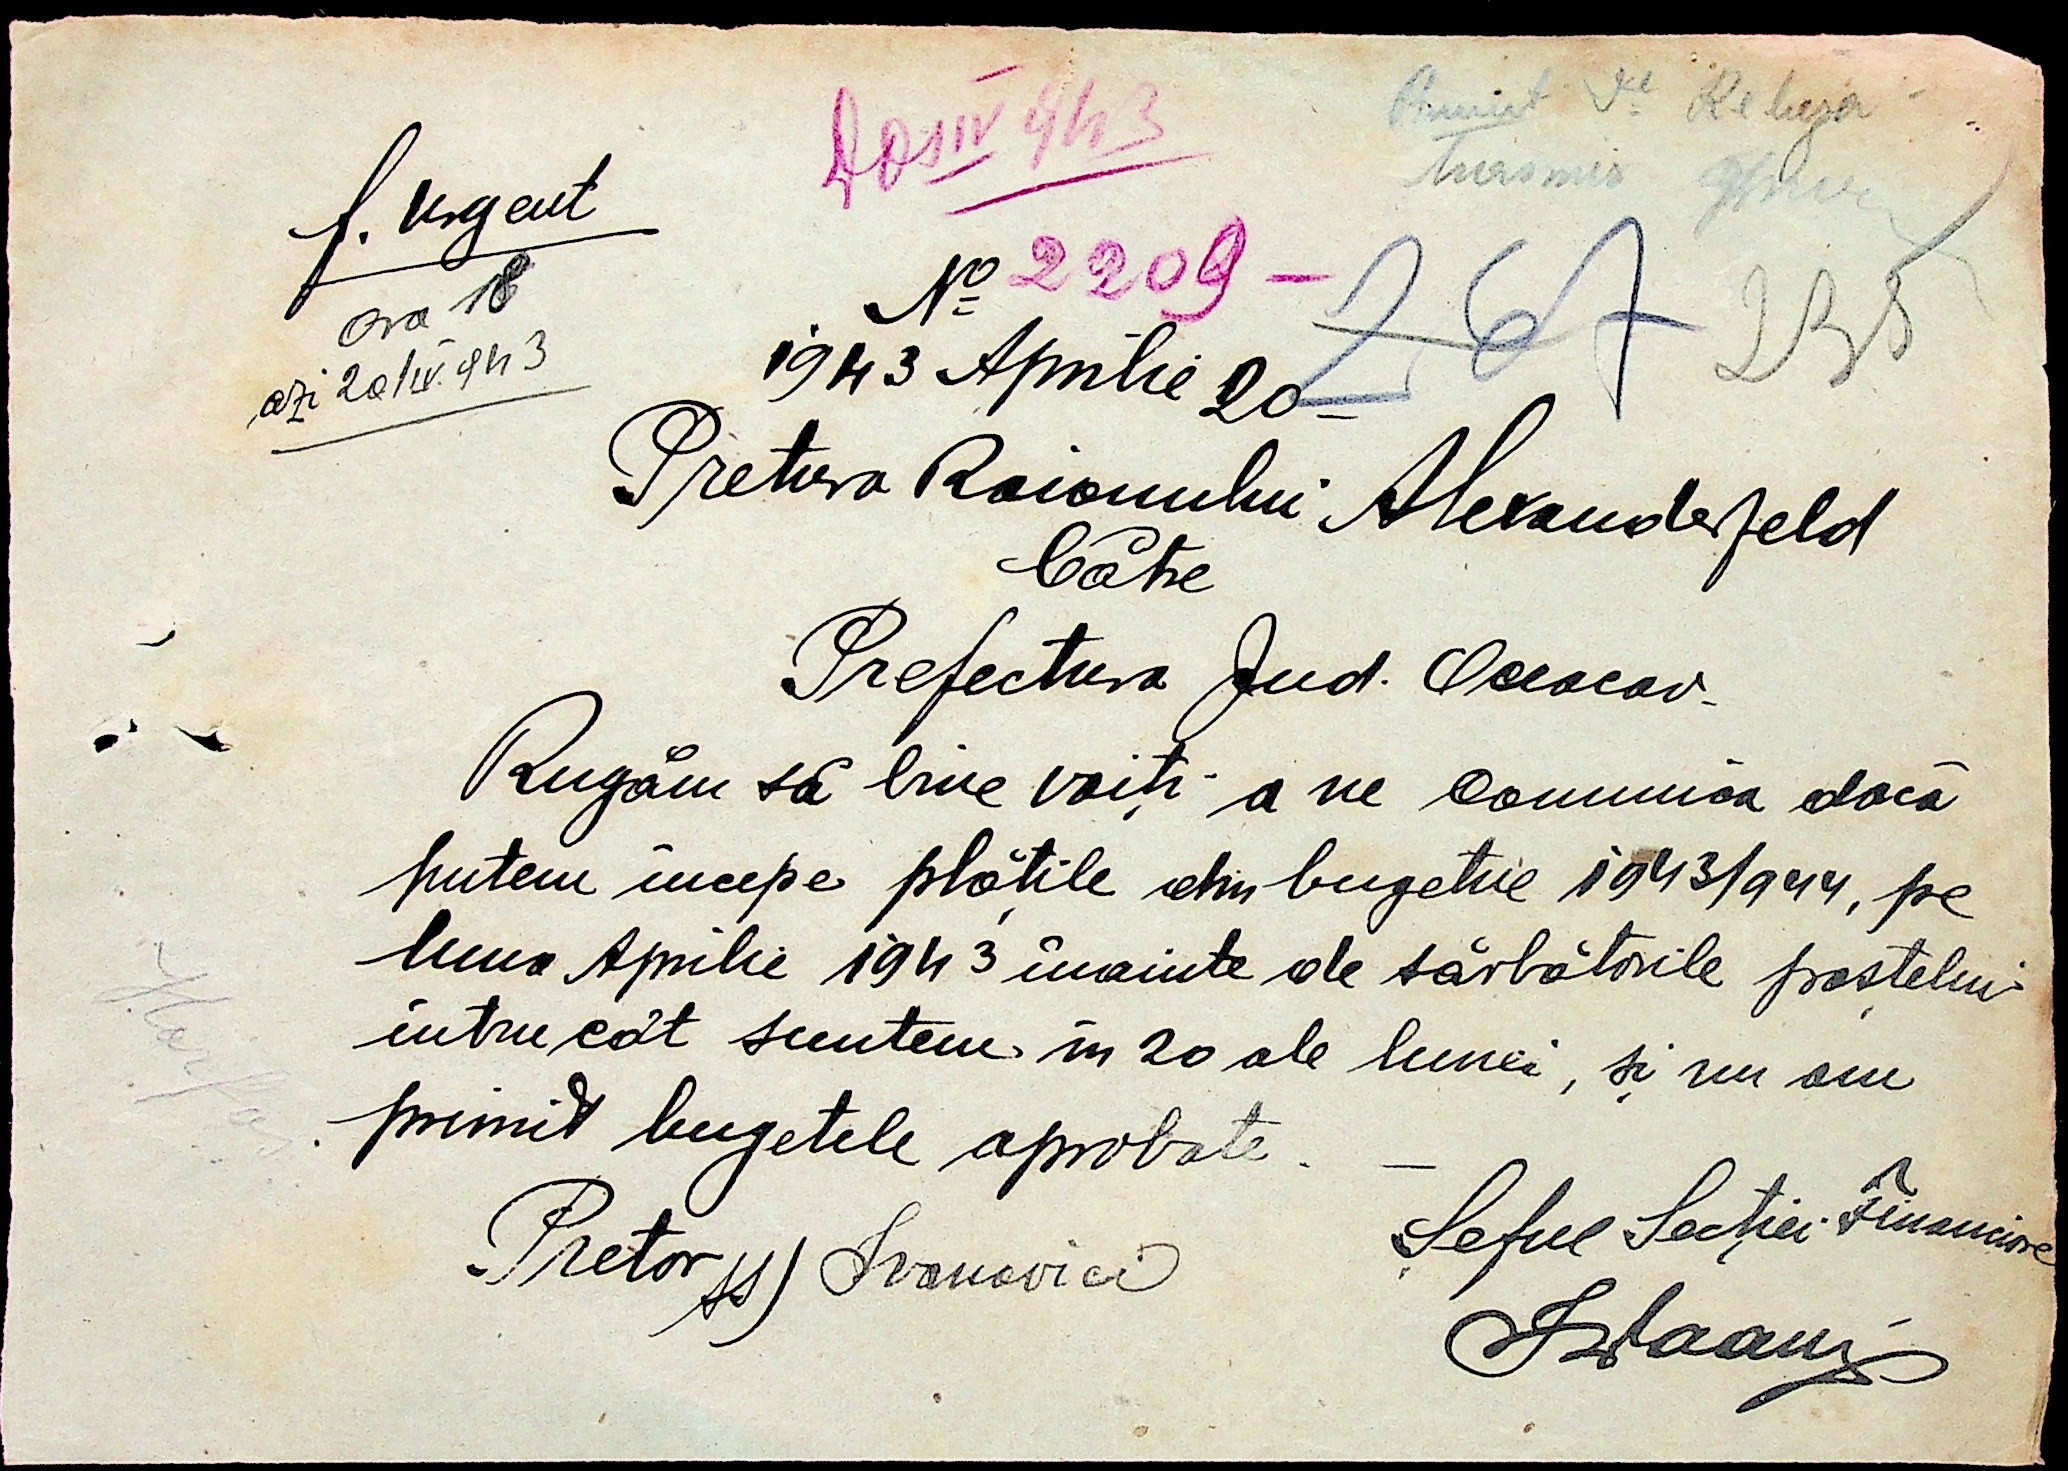 f. urgent
ora 18
azi 20/IV.943
20 IV 943
No 2209 –
267
1943 Aprilie 20 –
Pretura Raionului Alexanderfeld
Către
Prefectura Jud. Oceacov.
Rugăm să bine voiți a ne comunica dacă
putem începe plățile din bugetul 1943/944, pe
luna Aprilie 1943 înainte de sărbătorile paștelui
întru cât suntem în 20 ale lunei, și nu am
primit bugetele aprobate. –
Pretor ss) Ivanovici
Șeful Secției Financiare